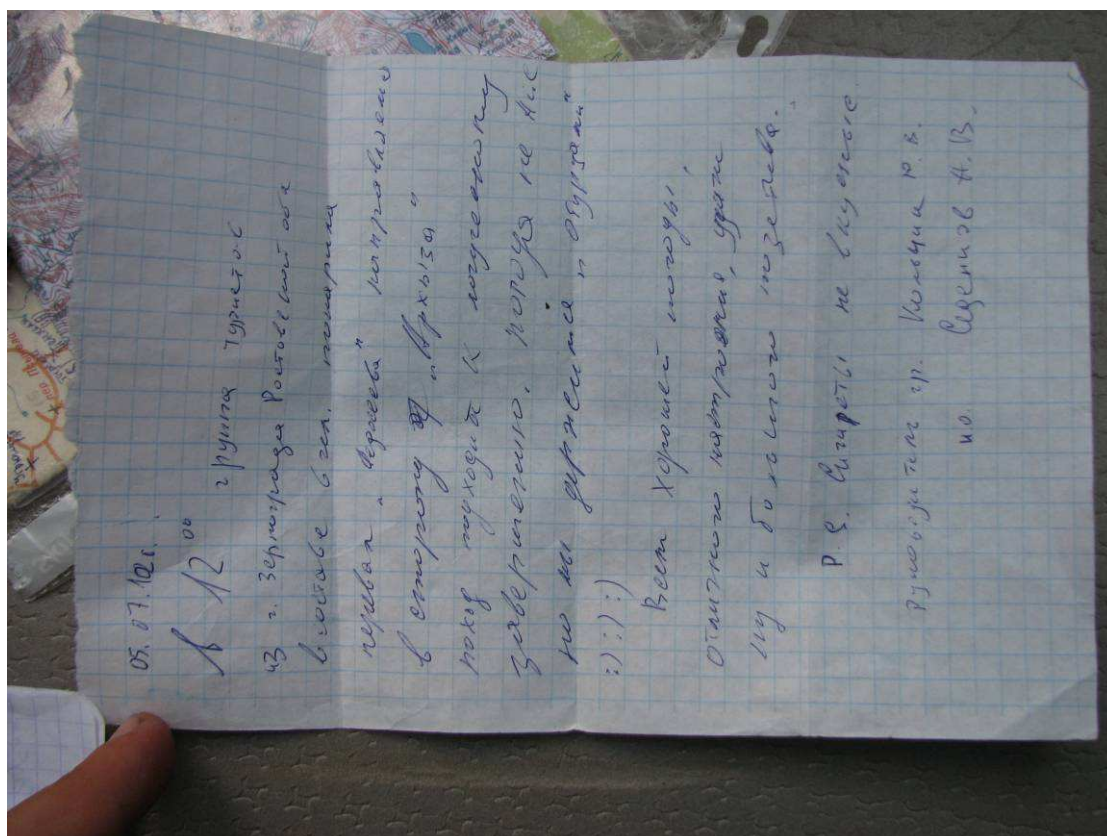 05.07.12г.
в 12 00 группа туристов
из г. Зернограда Ростовской обл
в составе 6 чел. покорила
перевал „Федосеева" направляемся
в сторону „Архыза"
поход подходит к логическому
завершению. Погода не АйС
но мы держимся „огурцами"
:) :) :) :)
Всем хорошей погоды,
отличного настроения, удачи
ну и большого позитива.
P.S. Сигареты не вкусные.
Руководитель гр. Кольцик Р.В.
но. Седенков А.В.